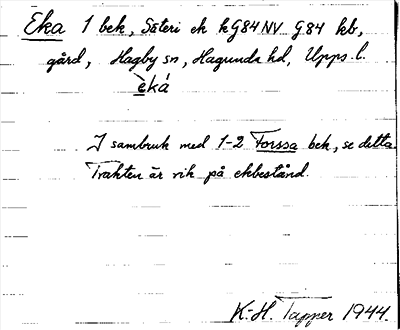 Eka 1 bek, Säteri ek kG84NV G84 kb,
gård, Hagby sn, Hagunda hd, Upps. l.
èká
I sambruk med 1-2 Forssa bek, se detta.
Trakten är rik på ekbestånd.
K.-H. Tapper 1944.